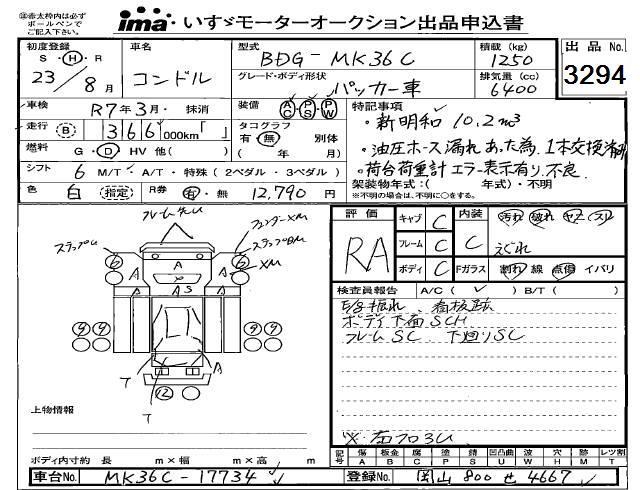 ※赤太枠内は必ず
ボールペンで
ご記入下さい。
ima いすゞモーターオークション出品申込書
初度登録 車名 型式 積載 (kg) 出品No.
S・H・R コンドル BDG-MK36C 1250 3294
23/8月 グレード・ボディ形状 パッカー車 排気量 (cc) 6400
車検 R7年3月・抹消 装備 AC・PS・PW 特記事項
走行 (B) 366,000km「 」 タコグラフ 有・無 別体 ・新明和 10.2m³
燃料 G・D HV 他( ) ( 年 月) ・油圧ホース漏れあった為、1本交換済
シフト 6 M/T・A/T・特殊(2ペダル・3ペダル) ・荷台荷重計エラー表示有り、不良
色 白 (指定) R券 有・無 12,790円 架装物年式:( 年式)・不明
※不明の場合は、不明に○をする。
フェンダーXM
ステップU ステップBM
XM
評価 キャブ C 内装 汚れ 破れ ヤケ スレ
RA フレーム C C えぐれ
ボディ C Fガラス 割れ 線 点傷 イバリ
検査員報告 A/C( ✓ ) B/T( )
看板跡
ボディ下面SCH
フレームSC 下廻りSC
6 A A 6
A A S A
9 9 9 9
T A
T 12
上物情報
ボディ内寸約 長 m×幅 m×高 m
記号 傷 A 板金 B 腐 C 塗 P 錆 S 凹凸曲 U 波 W 穴 H 跡 M レツ割 T
車台No. MK36C-17734 登録No. 岡山 800 せ 4667